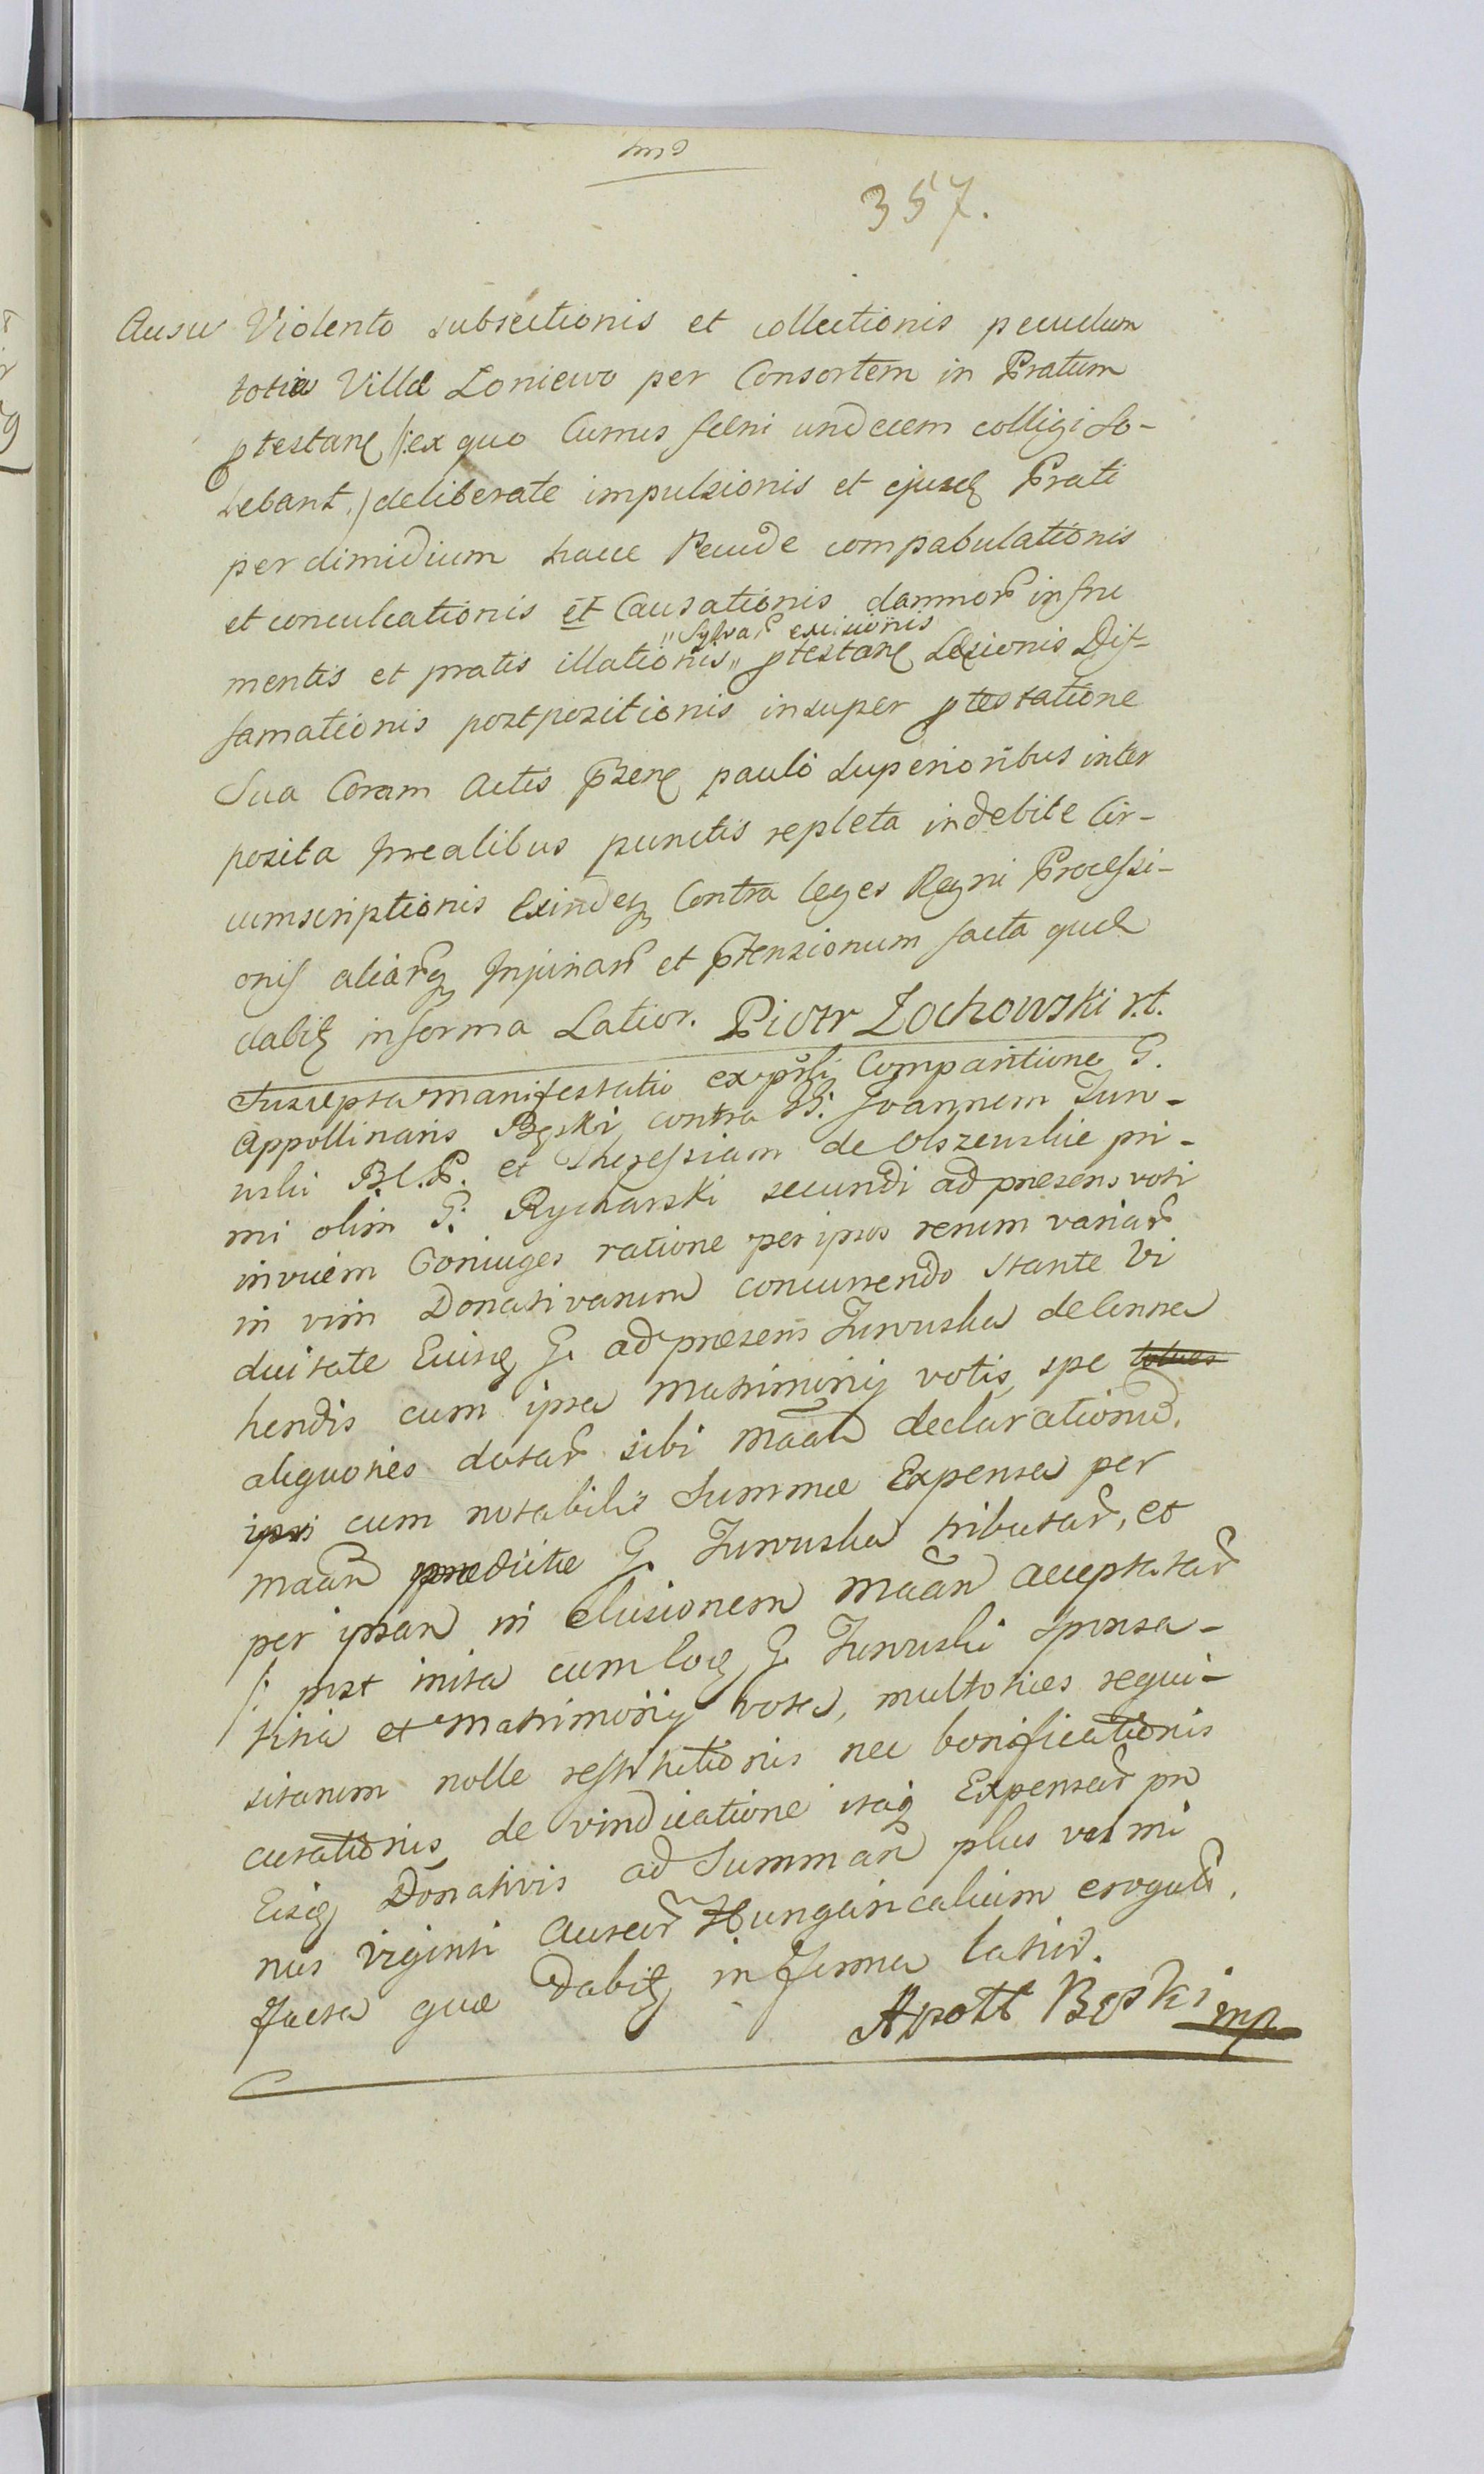 357.
Ausu Violento subsectionis et collectionis pecudum
totius Villæ Loniewo per Consortem in Pratum
ptestane /: ex quo Cumus fæni undecem colligi so-
lebant, / deliberate impulsionis et ejusd Prati
per dimidium hacce Pecude compabulationis
et conculcationis et Causationis damnor in fru
mentis et pratis illationis,, ptestane Læsionis Dif-
,,Sylvar excisionis
famationis postpositionis insuper ptestatione
Sua Coram Actis pzene paulo superioribus inter
posita irrealibus punctis repleta indebite Cir-
cumscriptionis Exindeq Contra leges Regni Processi-
onis aliarq Injuriar et ptensionum facta quæ
dabit in forma Latior. Piotr Zochowski r.t.
Suscepta manifestatio ex psli Comparitione G.
Appollinaris Bęski contra GG. Joannem Zuro-
wski B.C.P. et Theressiam de Olszewskie pri-
mi olim G. Rycharski secundi ad præsens voti
invicem Coniuges ratione per ipsos rerum variar
in vim Donativarum concurrendo stante Vi
duitate Eiusq G. ad præsens Zurowska de Contra
hendis cum ipsa Matrimonij votis, spe
aliquoties datar sibi maan declarationū.
ipsi cum notabilis Summæ Expensa per
maan prædictæ G. Zurowska tributar, et
per ipsan in elusionem maan acceptatar
/: post inita cum Eoq G. Zurowski sponsa-
litia et Matrimonij vota, multoties requi-
sitarum nolle restitutionis nec bonificationis
curationis, de vindicatione itaq Expensar pn
Eisq Donativis ad Summan plus vel mi
nus viginti Aurear Hungaricalium erogatr,
facta quæ Dabit in forma latior.
Apott Bęski mp